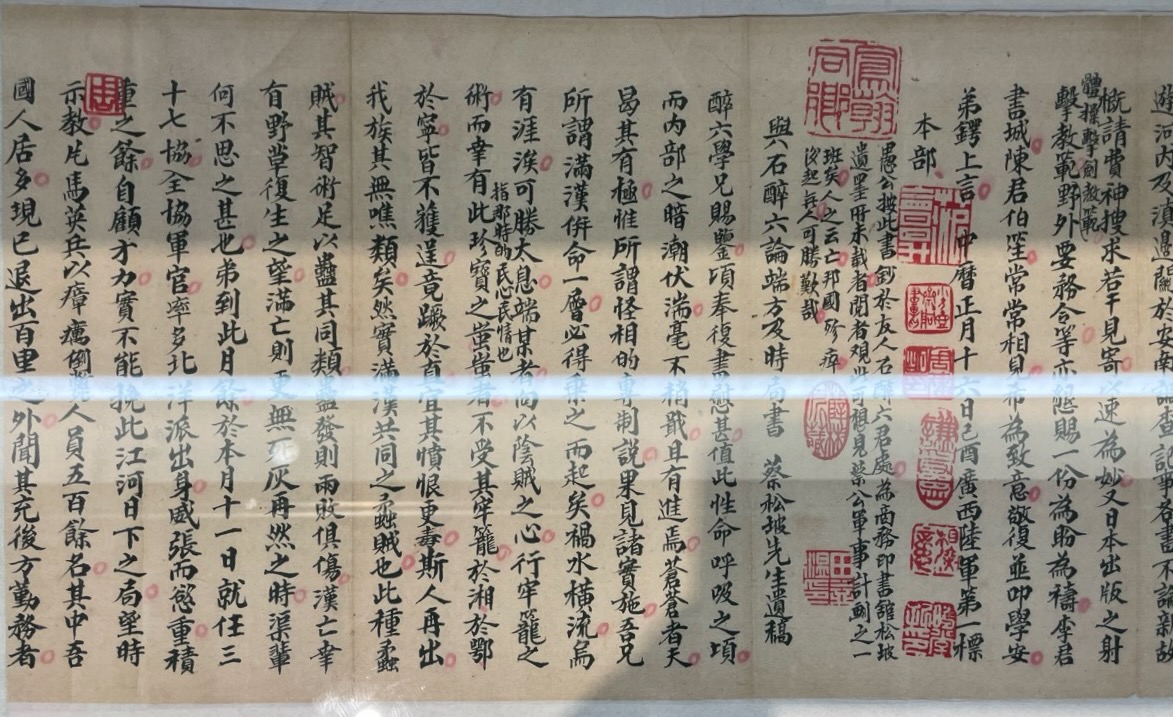 遊河內及漢
概請費神搜求若干見寄以速為妙又日本出版之射
體操擊劍教範
擊教範野外要務令等亦懇賜一份為盼為禱李君
書城陳君伯常常相見希為致意敬復並叩學安
弟鍔上言 中曆正月十六日己酉廣西陸軍第一標
本部
愚公披此書鈔於友人石醉六君處為商務印書館松坡
遺墨所未載者閱者覘此可想見蔡公軍事計畫之一
班矣人之云亡邦國殄瘁
沒起無人可勝歎哉
與石醉六論端方及時局書 蔡松坡先生遺稿
醉六學兄賜鑒頃奉復書慰甚值此性命呼吸之頃
而內部之暗潮伏湍毫不稍戢且有進焉蒼蒼者天
曷其有極惟所謂怪相的專制說果見諸實施吾兄
所謂滿漢併命一層必得乘之而起矣禍水橫流烏
有涯涘可勝太息端某者尚以陰賊之心行牢籠之
指那時的民心民情也
術而幸有此珍寶之蚩蚩者不受其牢籠於湘於鄂
於寧皆不獲逞竟蹶於直其憤恨更毒斯人再出
我族其無噍類矣然實滿漢共同之蟊賊也此種蟊
賊其智術足以蠱其同類蠱發則兩敗俱傷漢亡幸
有野草復生之望滿亡則更無死灰再然之時渠輩
何不思之甚也弟到此月餘於本月十一日就任三
十七協全協軍官率多北洋派出身威張而慾重積
重之餘自顧才力實不能挽此江河日下之局望時
示教片馬英兵以瘴癘倒斃人員五百餘名其中吾
國人居多現已退出百里之外聞其充後方勤務者